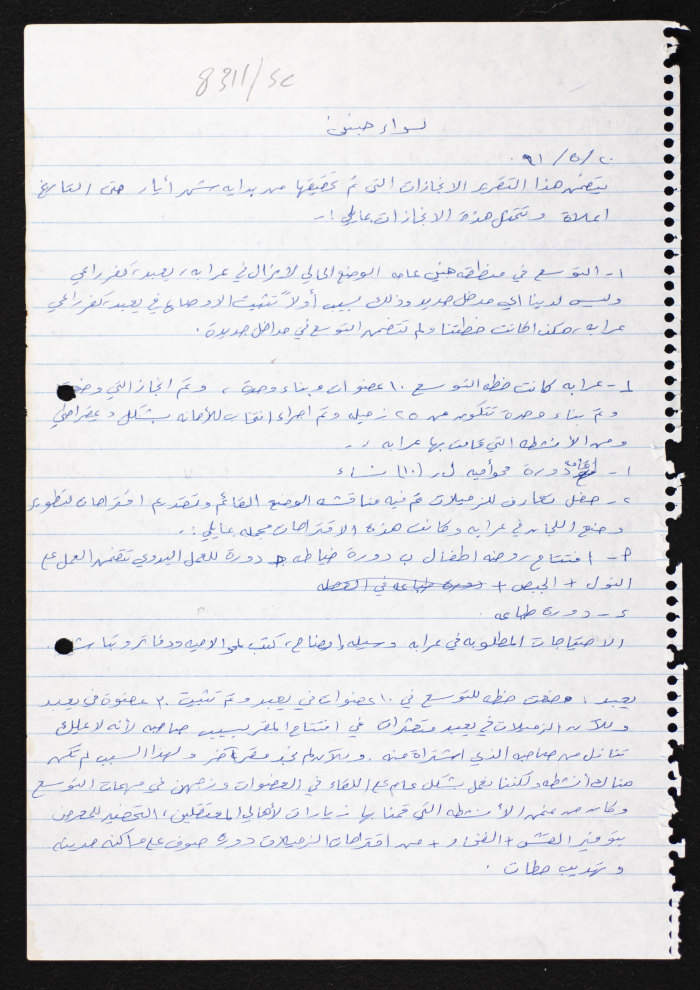 8311/SC
لواء جنين
٢٠/٥/٩١
يتضمن هذا التقرير الانجازات التي تم تحقيقها من بدايه شهر أيار حتى التاريخ
اعلاة وتتمثل هذة الانجازات بمايلي :-
١- التوسع في منطقه جنين عامه الوضع الحالي لا يزال في عرابه، يعبد، كفرراعي
وليس لدينا اي مدخل جديد وذلك بسبب أولاً تثبيت الاوضاع في يعبد، كفرراعي
عرابه، هكذا كانت خطتنا ولم تتضمن التوسع في مداخل جديدة.
١- عرابه كانت خطه التوسع ١٠ عضوات وبناء وحدة ، وتم انجاز التي وضعت
وتم بناء وحدة تتكون من ٢٥ زميله وتم اجراء انتخاب للأمانه بشكل ديمقراطي
ومن الأنشطه التي قامت بها عرابه :-
١- دورة محو أميه ل (١٠) نساء
٢- حفل تعارف للزميلات تم فيه مناقشه الوضع القائم وتقديم اقتراحات لتطوير
وضع اللجان في عرابه وكانت هذة الاقتراحات مجمله بمايلي :-
٣- افتتاح روضه اطفال ب دورة خياطه ج دورة للعمل اليدوي تتضمن العمل على
النول + الجبص + دورة طباعه في
٤- دورة طباعه.
الاحتياجات المطلوبه في عرابه وسيله ايضاح، كتب لمحو الاميه ودفاتر وتباشير
يعبد : وضعت خطه للتوسع في ١٠ عضوات في يعبد وتم تثبيت ٣٠ عضوة في يعبد
وللآن الزميلات في يعبد متعثرات في افتتاح المقر بسبب صاحبه لأنه لا يملك
تنازل من صاحبه الذي اشتراة منه. وللآن لم نجد مقر آخر ولهذا السبب لم تكن
هناك أنشطه ولكننا نعمل بشكل عام على اللقاء في العضوات وزجهن في مهمات التوسع
وكان من ضمن الأنشطه التي قمنا بها زيارات لأهالي المعتقلين، التحضير للمعرض
بتوفير القش + الفخار + من اقتراحات الزميلات دورة صوف على ماكنه حديثه
وتهديب حطات .